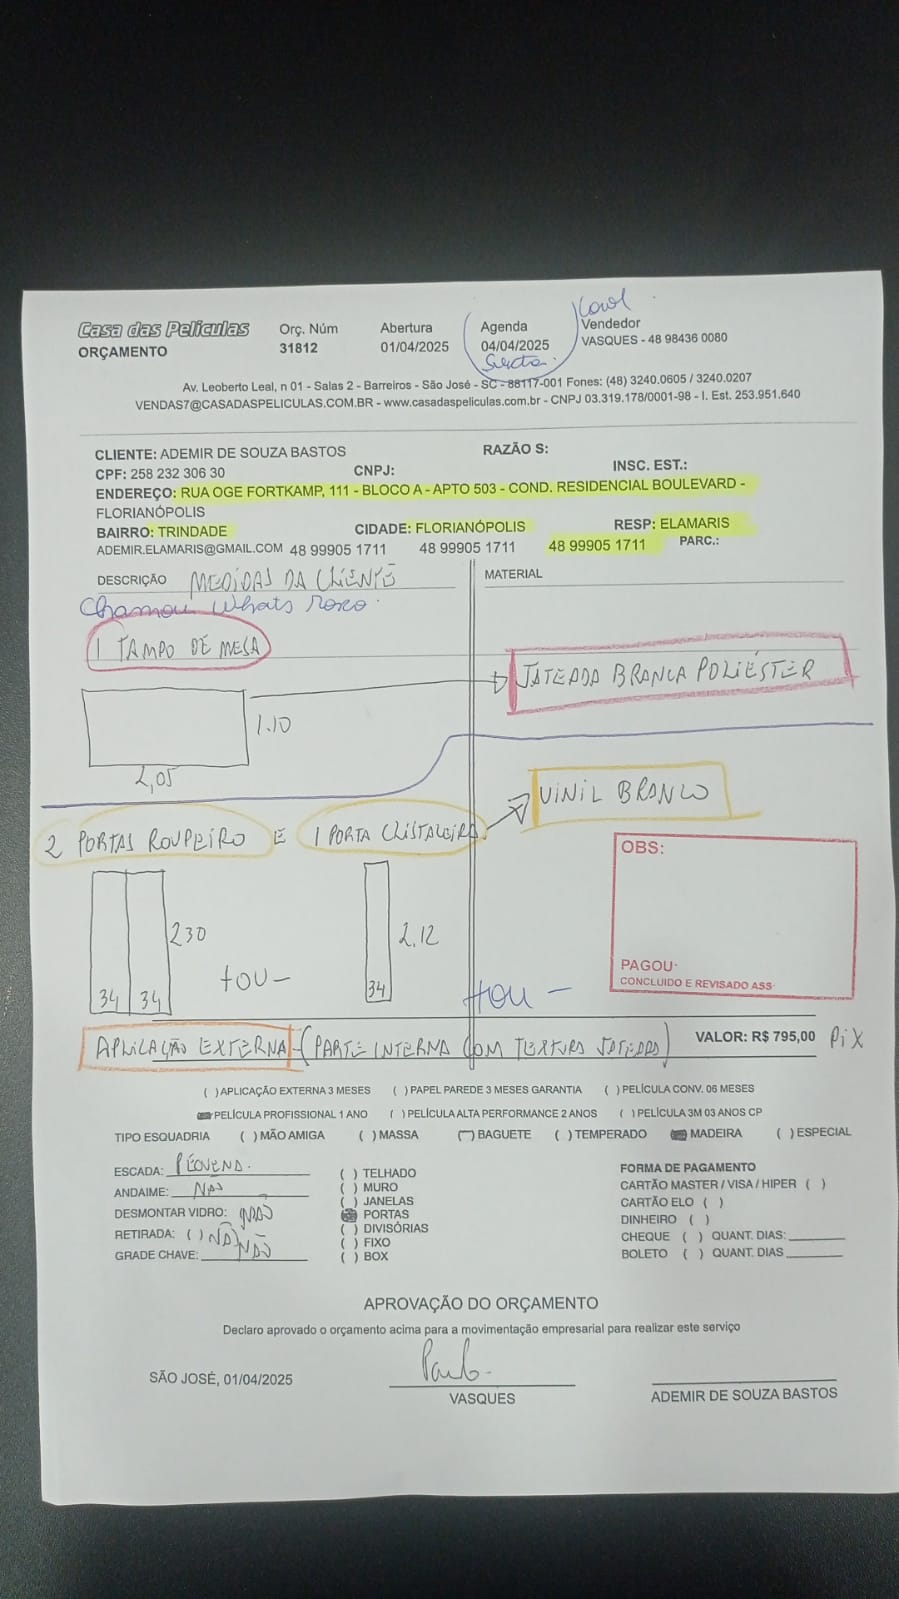 Casa das Peliculas
ORÇAMENTO
Orç. Núm
31812
Abertura
01/04/2025
Agenda
04/04/2025
Sexta
Karol
Vendedor
VASQUES - 48 98436 0080
Av. Leoberto Leal, n 01 - Salas 2 - Barreiros - São José - SC - 88117-001 Fones: (48) 3240.0605 / 3240.0207
VENDAS7@CASADASPELICULAS.COM.BR - www.casadaspeliculas.com.br - CNPJ 03.319.178/0001-98 - I. Est. 253.951.640
CLIENTE: ADEMIR DE SOUZA BASTOS RAZÃO S:
CPF: 258 232 306 30 CNPJ: INSC. EST.:
ENDEREÇO: RUA OGE FORTKAMP, 111 - BLOCO A - APTO 503 - COND. RESIDENCIAL BOULEVARD -
FLORIANÓPOLIS
BAIRRO: TRINDADE CIDADE: FLORIANÓPOLIS RESP: ELAMARIS
ADEMIR.ELAMARIS@GMAIL.COM 48 99905 1711 48 99905 1711 48 99905 1711 PARC.:
DESCRIÇÃO MEDIDAS DA CLIENTE MATERIAL
Chamou Whats
1 TAMPO DE MESA
JATEADA BRANCA POLIÉSTER
1.10
2,05
VINIL BRANCO
2 PORTAS ROUPEIRO E 1 PORTA CRISTALEIRA
OBS:
230
2,12
34 34
34
PAGOU:
CONCLUIDO E REVISADO ASS:
APLICAÇÃO EXTERNA - (PARTE INTERNA COM TEXTURA JATEADA) VALOR: R$ 795,00 PIX
( ) APLICAÇÃO EXTERNA 3 MESES ( ) PAPEL PAREDE 3 MESES GARANTIA ( ) PELÍCULA CONV. 06 MESES
PELÍCULA PROFISSIONAL 1 ANO ( ) PELÍCULA ALTA PERFORMANCE 2 ANOS ( ) PELÍCULA 3M 03 ANOS CP
TIPO ESQUADRIA ( ) MÃO AMIGA ( ) MASSA ( ) BAGUETE ( ) TEMPERADO MADEIRA ( ) ESPECIAL
ESCADA: PEQUENA.
ANDAIME: NÃO
DESMONTAR VIDRO: NÃO
RETIRADA: ( ) NÃO
GRADE CHAVE: NÃO
( ) TELHADO
( ) MURO
( ) JANELAS
PORTAS
( ) DIVISÓRIAS
( ) FIXO
( ) BOX
FORMA DE PAGAMENTO
CARTÃO MASTER / VISA / HIPER ( )
CARTÃO ELO ( )
DINHEIRO ( )
CHEQUE ( ) QUANT. DIAS:
BOLETO ( ) QUANT. DIAS
APROVAÇÃO DO ORÇAMENTO
Declaro aprovado o orçamento acima para a movimentação empresarial para realizar este serviço
SÃO JOSÉ, 01/04/2025
Paulo
VASQUES
ADEMIR DE SOUZA BASTOS